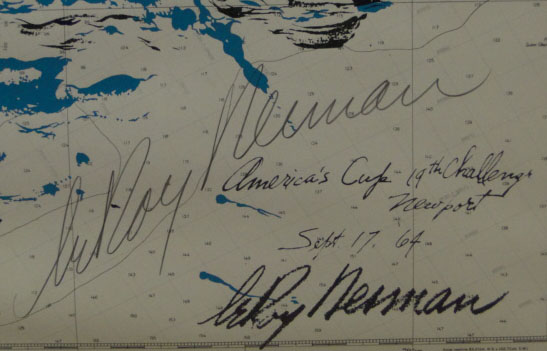 LeRoy Neiman
America's Cup 19th Challenge
Newport
Sept. 17. 64
LeRoy Neiman